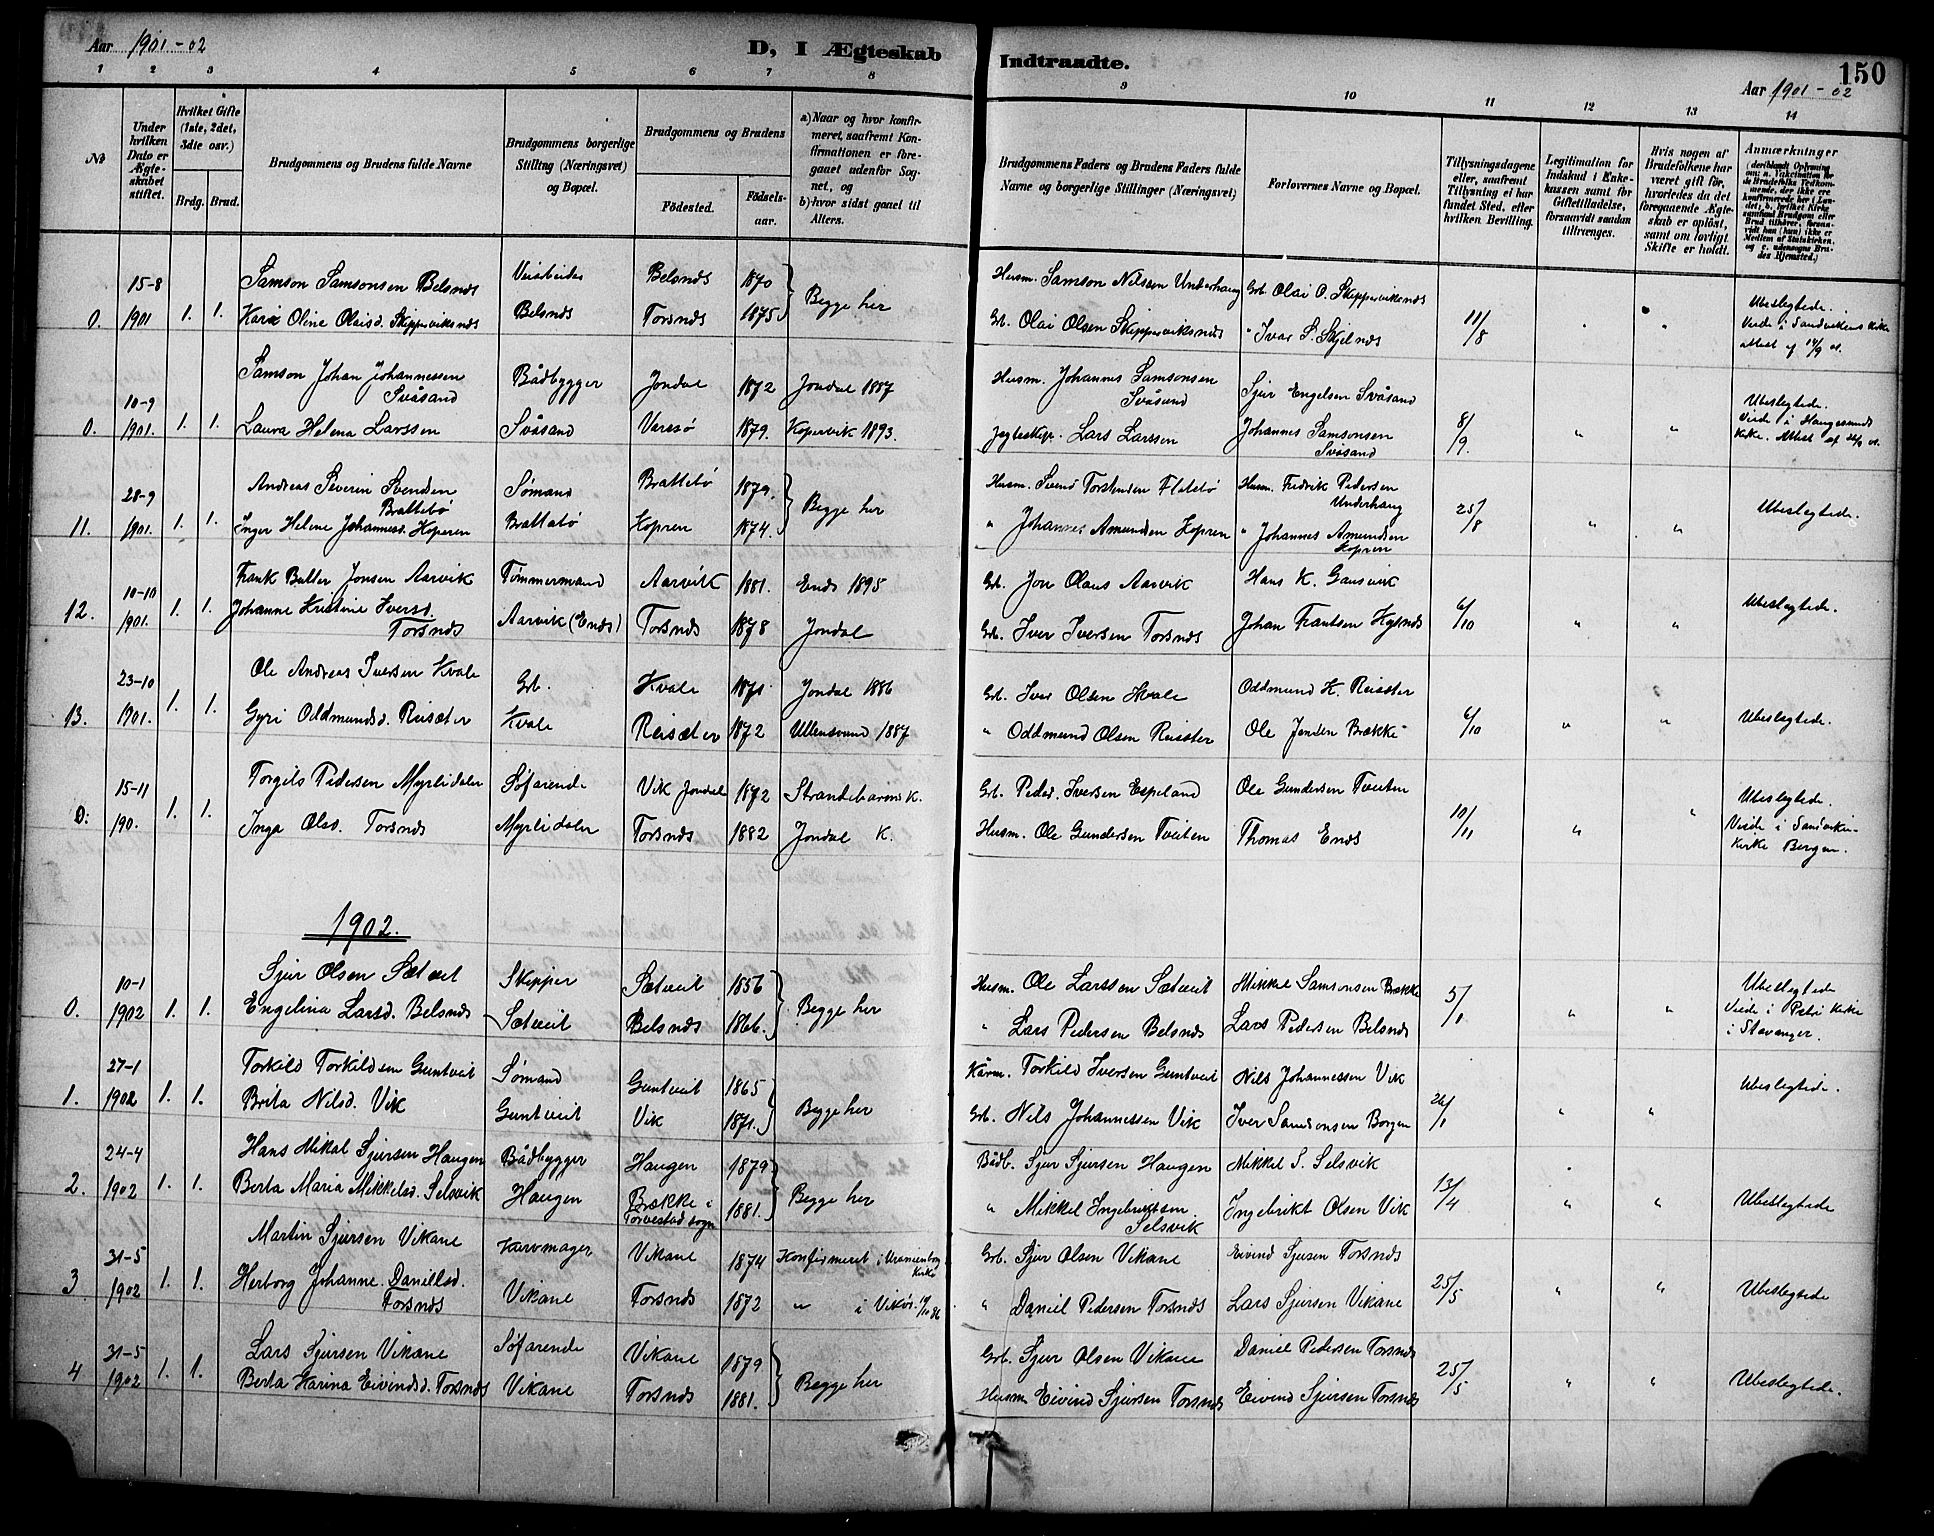 Aar 1901-02
D, I Ægteskab
Indtraadte.
150
Aar 1901-02
1 2 3 4 5 6 7 8 9 10 11 12 13 14
No
Under hvilken Dato er Ægteskabet stiftet.
Hvilket Gifte (1ste, 2det, 3die osv.)
Brdg. Brud.
Brudgommens og Brudens fulde Navne
Brudgommens borgerlige Stilling (Næringsvei) og Bopæl.
Brudgommens og Brudens
Fødested.
Fødselsaar.
a) Naar og hvor konfirmeret, saafremt Konfirmationen er foregaaet udenfor Sognet, og
b) hvor sidst gaaet til Alters.
Brudgommens Faders og Brudens Faders fulde Navne og borgerlige Stillinger (Næringsvei)
Forlovernes Navne og Bopæl.
Tillysningsdagene eller, saafremt Tillysning ei har fundet Sted, efter hvilken Bevilling.
Legitimation for Indskud i Enkekassen samt for Giftetilladelse, forsaavidt saadan tiltrænges.
Hvis nogen af Brudefolkene har været gift før, hvorledes da det foregaaende Ægteskab er opløst, samt om lovligt Skifte er holdt.
Anmærkninger
(deriblandt Oplysning om: a. Vaksination for de Brudefolks Vedkommende, der ikke ere konfirmerede her i Landet, b. hvilket Kirkesamfund Brudgom eller Brud tilhører, forsaavidt han (hun) ikke er Medlem af Statskirken, og c. udensogns Brudes Hjemsted.)
15-8 Samson Samsonsen Belsnes Veiarbeider Belsnes 1870 Husm. Samson Nilssen Underhaug Grb. Olai O. Skippervikenes Ubeslegtede.
0. 1901 1. 1. Kari Oline Olaisd. Skippervikenes Belsnes Torsnes 1875 Begge her Grb. Olai Olsen Skippervikenes " Ivar S. Skjelnes 11/8 Viede i Sandvikens Kirke
attest af 14/9 01.
10-9 Samson Johan Johannessen Svåsand Bådbygger Jondal 1872 Jondal 1887 Husm. Johannes Samsonsen Svåsand Sjur Engelsen Svåsand Ubeslegtede.
0. 1901. 1. 1. Laura Helena Larssen Svåsand Varesø 1879. Kopervik 1893. Jagteskpr. Lars Larssen Johannes Samsonsen Svåsand 8/9. " " Viede i Haugesunds Kirke. Attest af
28-9 Andreas Severin Svendsen Brattebø Sømand Brattebø 1879. Husm. Svend Torstensen Flatebø Husm. Fredrik Pedersen Underhaug
11. 1901. 1. 1. Inger Helene Johannesd. Koperen Brattebø Kopren 1874. Begge her " Johannes Amundsen Kopren " Johannes Amundsen Kopren 25/8 " " Ubeslegtede.
10-10 Frank Butler Jonsen Aarvik Tømmermand Aarvik 1881. Enes 1895 Grb. Jon Olaus Aarvik Hans K. Gausvik
12. 1901. 1. 1. Johanne Kristine Iversd. Torsnes Aarvik (Enes) Torsnes 1878 Jondal Grb. Iver Iversen Torsnes Johan Frantsen 6/10 " " Ubeslegtede.
23-10 Ole Andreas Iversen Kvale Grb. Kvale 1871. Jondal 1886 Grb. Iver Olsen Kvale Oddmund K. Reisæter
13. 1901. 1. 1. Gyri Oddmundsd. Reisæter Kvale Reisæter 1872 Ullensvand 1887 " Oddmund Olsen Reisæter Ole Jensen Brække 6/10 " " Ubeslegtede.
15-11 Torgils Pedersen Myrlidalen Søfarende Vik Jondal 1872 Strandebarm K. Grb. Peder Iversen Espeland Ole Gundersen Tveiten Ubeslegtede.
0. 190. 1. 1. Inga Olsd. Torsnes Myrlidalen Torsnes 1882 Jondal K. Husm. Ole Gundersen Tveiten Thomas Enes 10/11 " " Viede i Sandviken Kirke Bergen.
1902.
10-1 Sjur Olsen Sætveit Skipper Sætveit 1856 Husm. Ole Larssen Sætveit Mikkel Samsonsen Brække Ubeslegtede
0. 1902 1. 1. Engelina Larsd. Belsnes Sætveit Belsnes 1866. Begge her " Lars Pedersen Belsnes Lars Pedersen Belsnes 5/1 " " Viede i Petri Kirke i Stavanger.
27-1 Torkild Torkildsen Guntveit Sømand Guntveit 1865 Kårm. Torkild Iversen Guntveit Nils Johannessen Vik Ubeslegtede.
1. 1902 1. 1. Brita Nilsd. Vik Guntveit Vik 1871. Begge her Grb. Nils Johannessen Vik Iver Samsonsen Borgen 26/1 " "
24-4 Hans Mikal Sjursen Haugen Bådbygger Haugen 1879 Bådb. Sjur Sjursen Haugen Mikkel S. Selsvik
2. 1902 1. 1. Berta Maria Mikkelsd. Selsvik Haugen Brække i Torvestad sogn 1881. Begge her " Mikkel Ingebriktsen Selsvik Ingebrikt Olsen Vik 13/4 " " Ubeslegtede
31-5 Martin Sjursen Vikane Kurvmager Vikane 1874 Konfirmeret i Uranienborg Kirke Grb. Sjur Olsen Vikane Eivind Sjursen Torsnes
3 1902 1. 1. Herborg Johanne Danielsd. Torsnes Vikane Torsnes 1872 " i Vikør 86 " Daniel Pedersen Torsnes Lars Sjursen Vikane 25/5 " " Ubeslegtede
31-5 Lars Sjursen Vikane Søfarende Vikane 1879 Grb. Sjur Olsen Vikane Daniel Pedersen Torsnes
4 1902 1. 1. Berta Karina Eivindsd. Torsnes Vikane Torsnes 1881. Begge her Husm Eivind Sjursen Torsnes Eivind Sjursen Torsnes 25/5 " " Ubeslegtede.